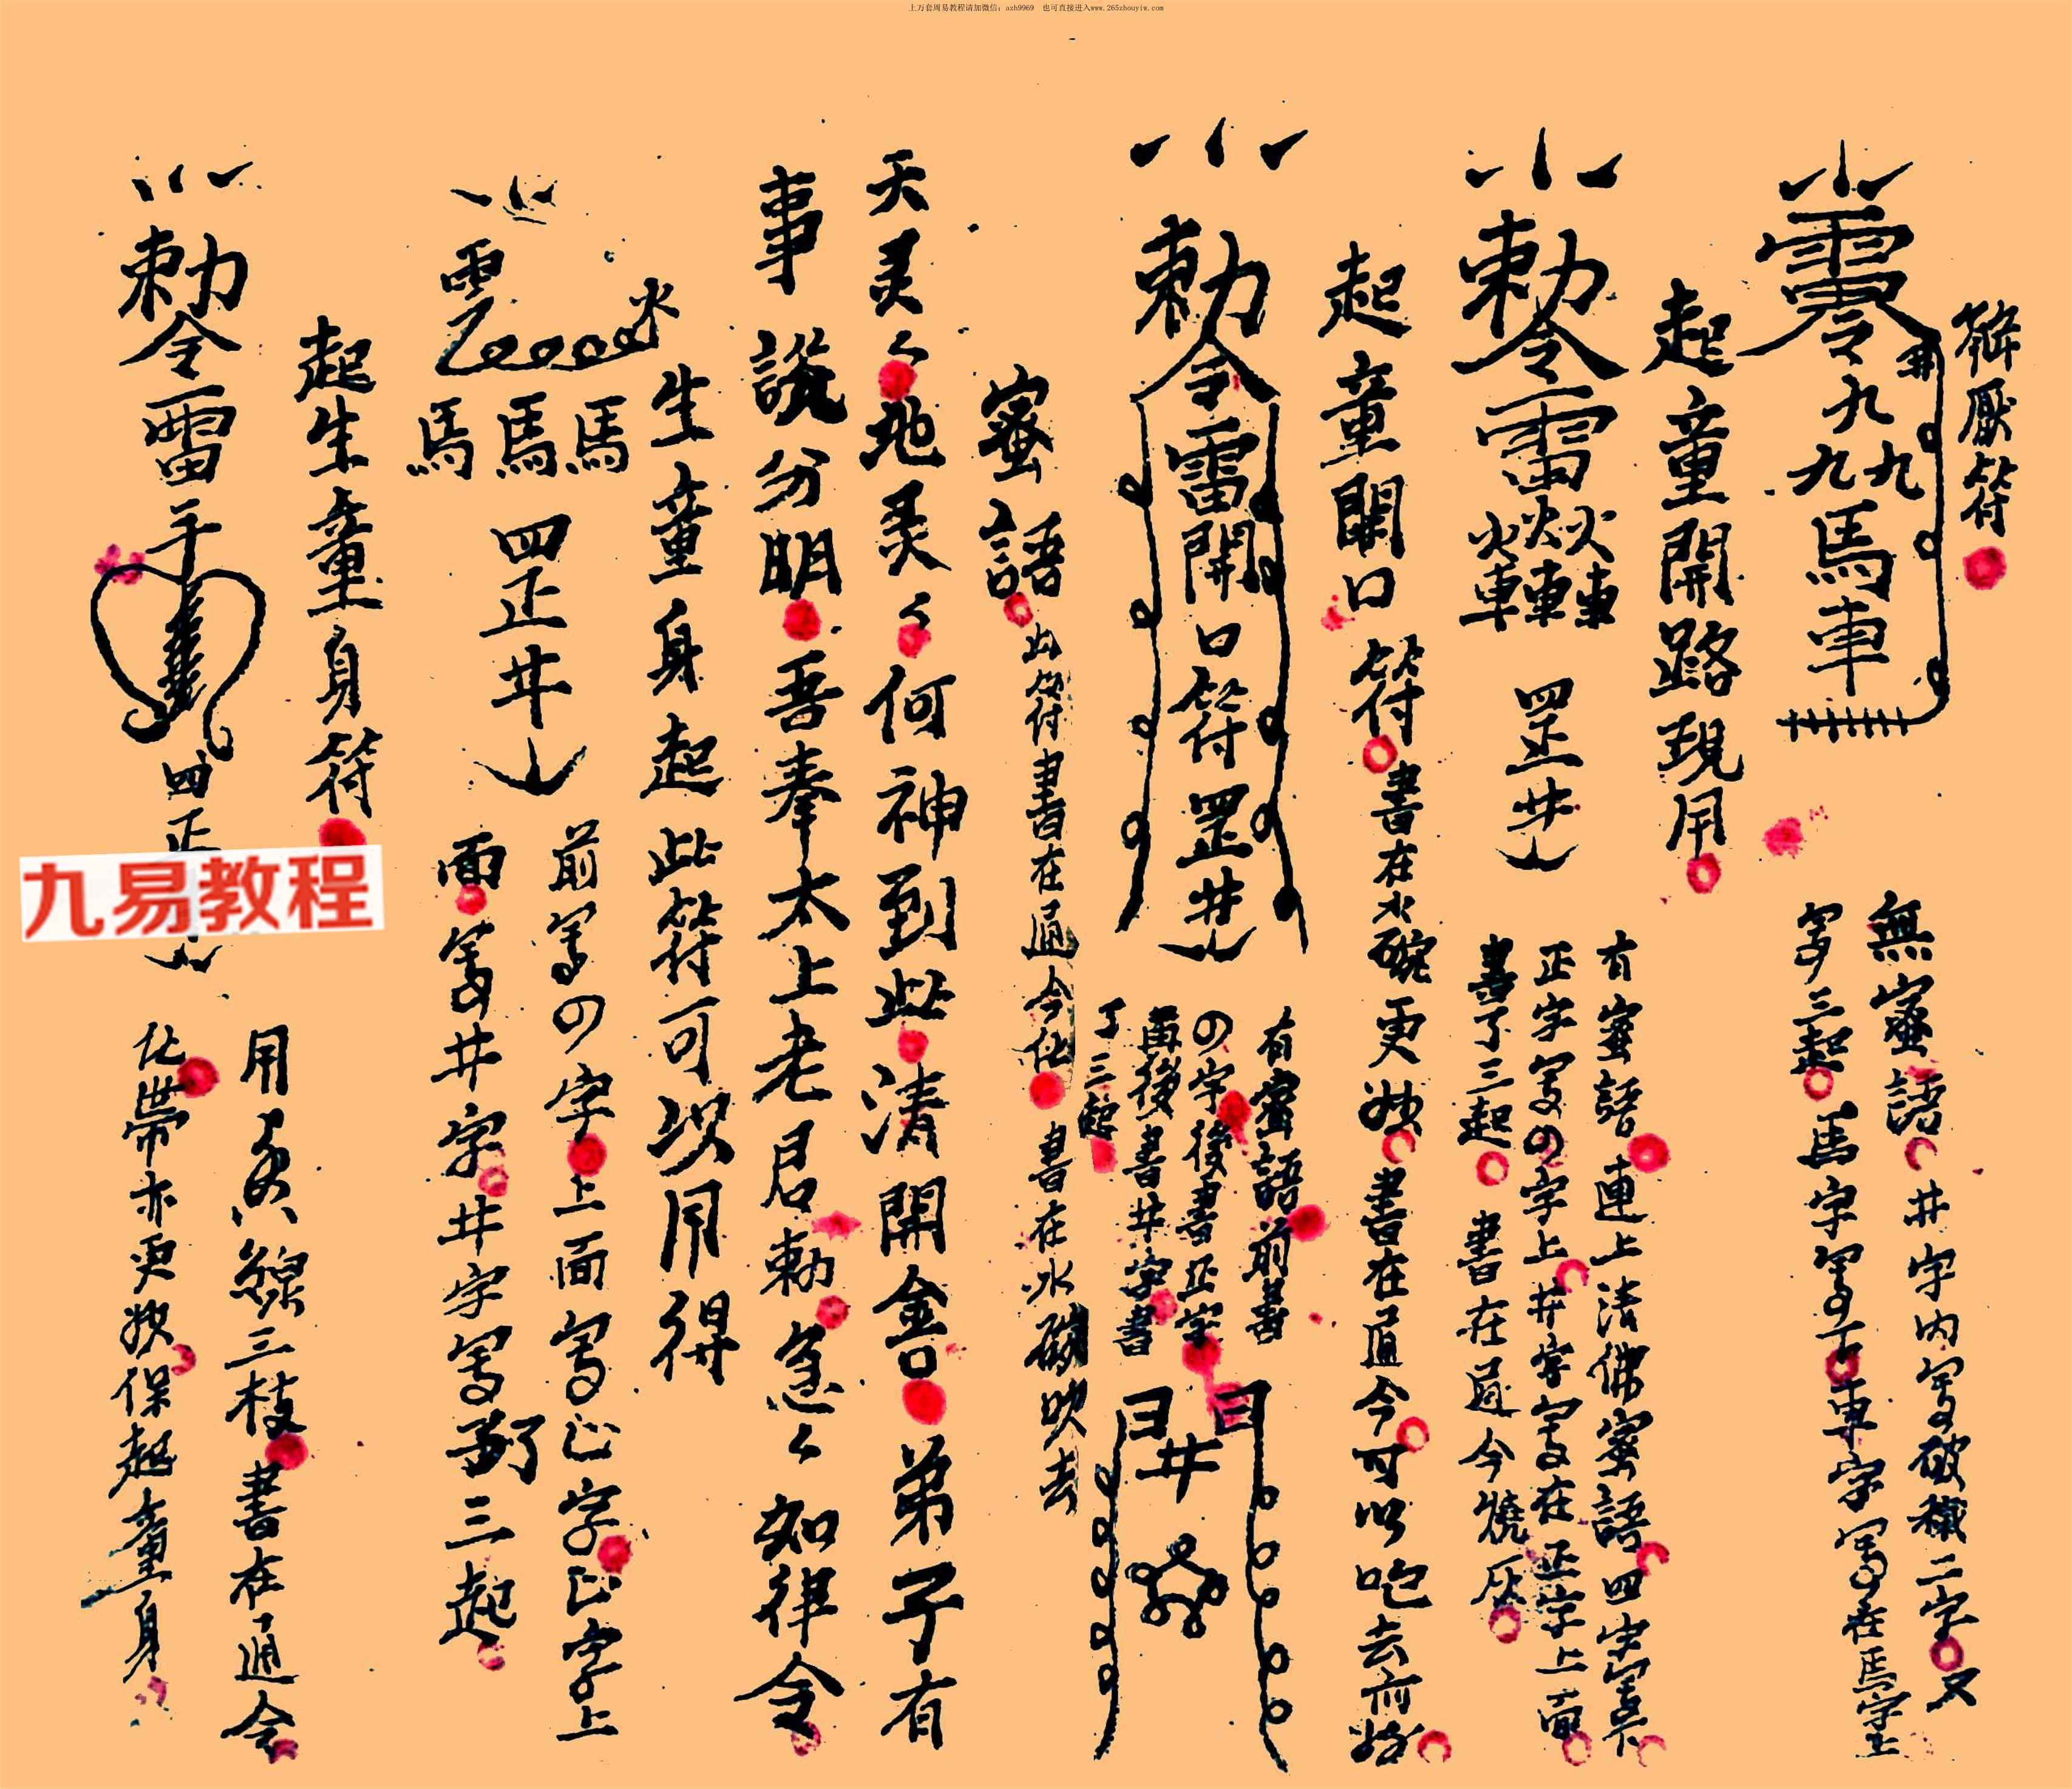 上万套周易教程请加微信：azh9969　也可直接进入www.265zhouyiw.com
解厭符
九九九馬車
無蜜語井字内写破穢二字又
写三起馬字写下車字写在馬字上
起童開路現用
勅令雷火車火車火車
罡井
有蜜語連上清佛蜜語四字写下
正字写の字上井字写在正字上面
書了三起書在通今燒灰
起童開口符書在水碗更妙書在通今可以吃去而好
勅令雷開口符罡井
有蜜語前書
の字後書正字
面後書井字書
了三起
井
蜜語此符書在通今化書在水碗吹去
天灵々地灵々何神到此清開金口弟子有
事説分明吾奉太上老君勅急々如律令
生童身起此符可以用得
馬馬馬
四正井
前写の字上面写正字正字上
面写井字井字写了三起
起生童身符
用線三枝書在通今
勅令雷
四正
化帶亦更妙保起童身
九易教程